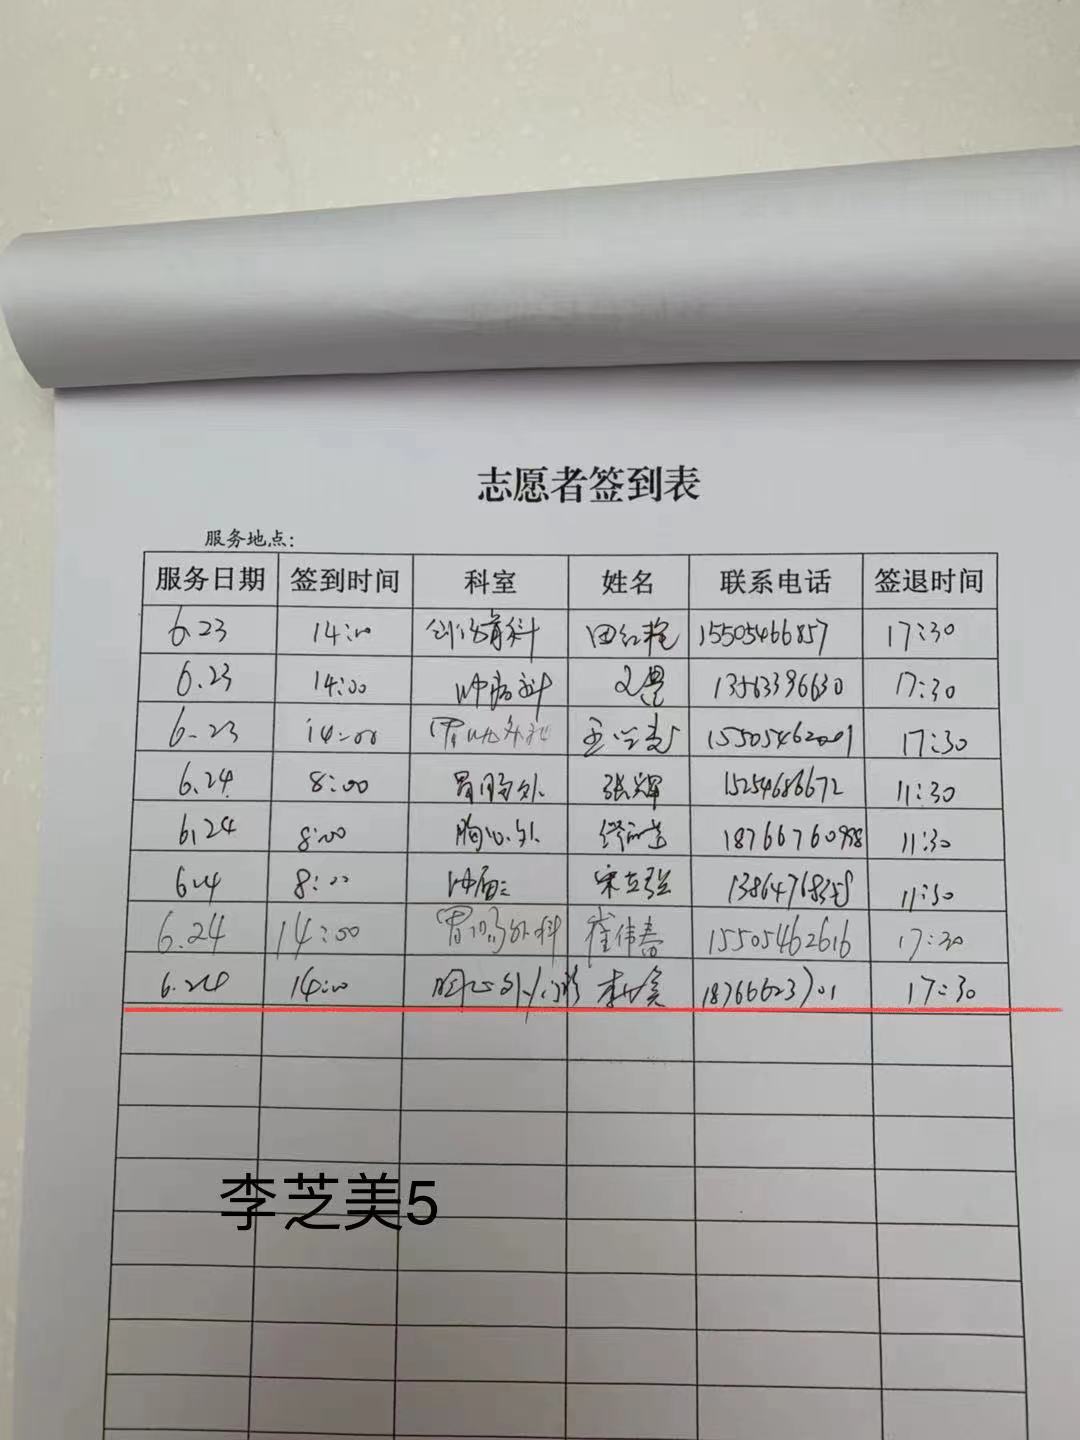 志愿者签到表
服务地点：
服务日期 签到时间 科室 姓名 联系电话 签退时间
6.23 14:00 创伤骨科 田红 15505466857 17:30
6.23 14:00 肿瘤科 13563396630 17:30
6.23 14:00 胃肠外科 15505462001 17:30
6.24 8:00 胃肠外 张辉 15254686672 11:30
6.24 8:00 胸心外 18766760998 11:30
6.4 8:00 宋立强 11:30
6.24 14:00 胃肠外科 崔伟春 15505462616 17:30
6.24 14:00 胸心外门诊 李芝美 18766623701 17:30
李芝美5